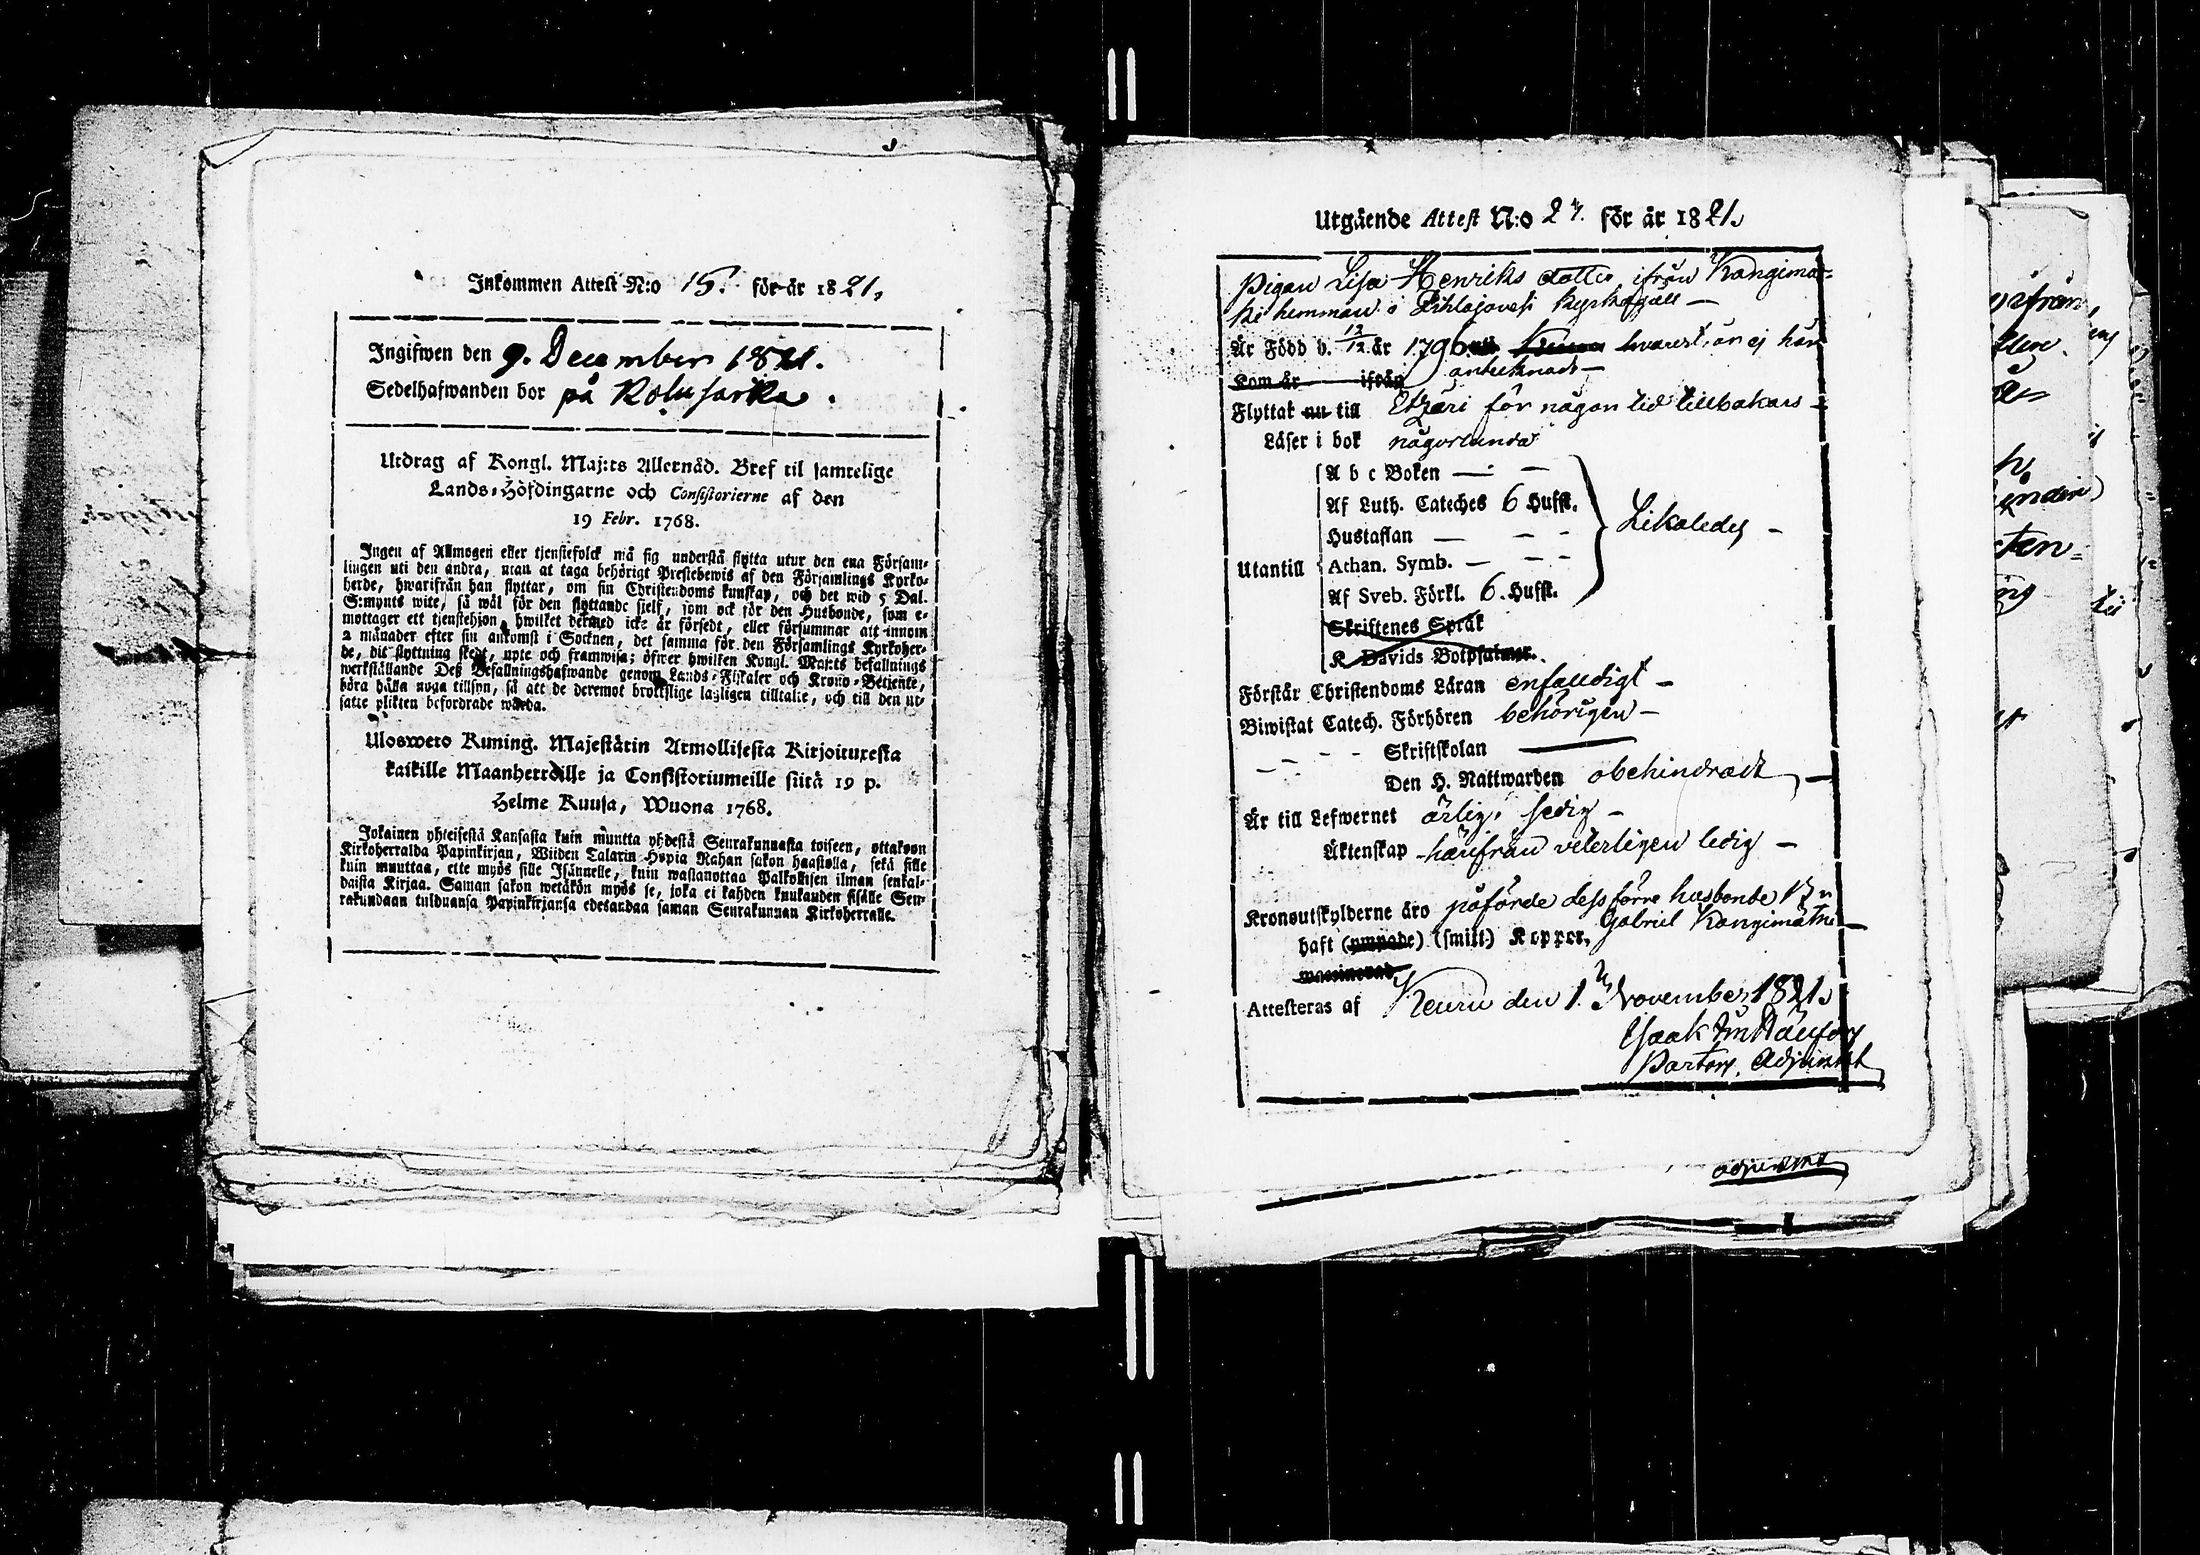 Inkommen Attest N:o 15. för år 1821,
Ingifwen den 9. December 1821.
Sedelhafwanden bor på Kolusarka.
Utdrag af Kongl. Maj:ts Allernåd. Bref til samtelige
Lands-Höfdingarne och Consistorierne af den
19 Febr. 1768.
Ingen af Allmogen eller tjenstefolck må sig understå flytta utur den ena Försam-
lingen uti den andra, utan at taga behörigt Prestebewis af den Församlings Kyrko-
herde, hwarifrån han flyttar, om sin Christendoms kunskap, och det wid 5 Dal.
S:mynts wite, så wäl för den flyttande sielf, som ock för den Husbonde, som e-
mottager ett tjenstehjon, hwilket dermed icke är försedt, eller försummar att innom
2 månader efter sin ankomst i Socknen, det samma för den Församlings Kyrkoher-
de, dit flyttning skedt, upte och framwisa; öfwer hwilken Kongl. Maj:ts befallnings
werkställande Deß Befallningshafwande genom Lands-Fiskaler och Krono-Betjente,
böra hålla noga tillsyn, så att de deremot brottslige lagligen tilltalte, och till den ut-
satte plikten befordrade warda.
Ulosweto Kuning. Majestätin Armollisesta Kirjoituxesta
kaikille Maanherroille ja Consistoriumeille siitä 19 p.
Helme Kuusa, Wuona 1768.
Jokainen yhteisestä Kansasta kuin muutta yhdestä Seurakunnasta toiseen, ottakoon
Kirkoherralda Papinkirjan, Wiiden Talarin Hopia Rahan sakon haastolla, sekä sille
kuin muuttaa, ette myös sille Isännelle, kuin wastanottaa Palkollisen ilman senkal-
daista Kirjaa. Saman sakon wetäkön myös se, joka ei kahden kuukauden sisälle Seu-
rakundaan tulduansa Papinkirjansa edesandaa saman Seurakunnan Kirkoherralle.
Utgående Attest N:o 27. för år 1821.
Pigan Lisa Henriks dotter ifrån Kangima=
ki hemman i Pihlajavesi kyrkogäll —
Är Född d. 12/12 år 1796 hvarest, är ej här
Kom år ifrån antecknadt —
Flyttat nu till Etzäri för någon tid tillbakars —
Läser i bok någorlunda
A b c Boken — —
Af Luth. Cateches 6 Hufst.
Hustaflan — — -
Likaledes —
Utantill Athan. Symb. — — -
Af Sveb. Förkl. 6. Hufst.
Skriftenes Språk
K Davids Botpsalmer.
Förstår Christendoms Läran enfaldigt —
Biwistat Catech. Förhören behörigen —
— - - Skriftskolan ———
Den H. Nattwarden obehindradt, —
Är till Lefwernet ärlig, sedig —
Äktenskap härifrån veterligen ledig —
Kronoutskylderne äro påförde dess förre husbonde
haft (ympade) (smitt.) Koppor, Gabriel Kangimäki —
Attesteras af Keuru den 1. November 1821.
Isaak
Pastors. Adjunkt
adjunkt